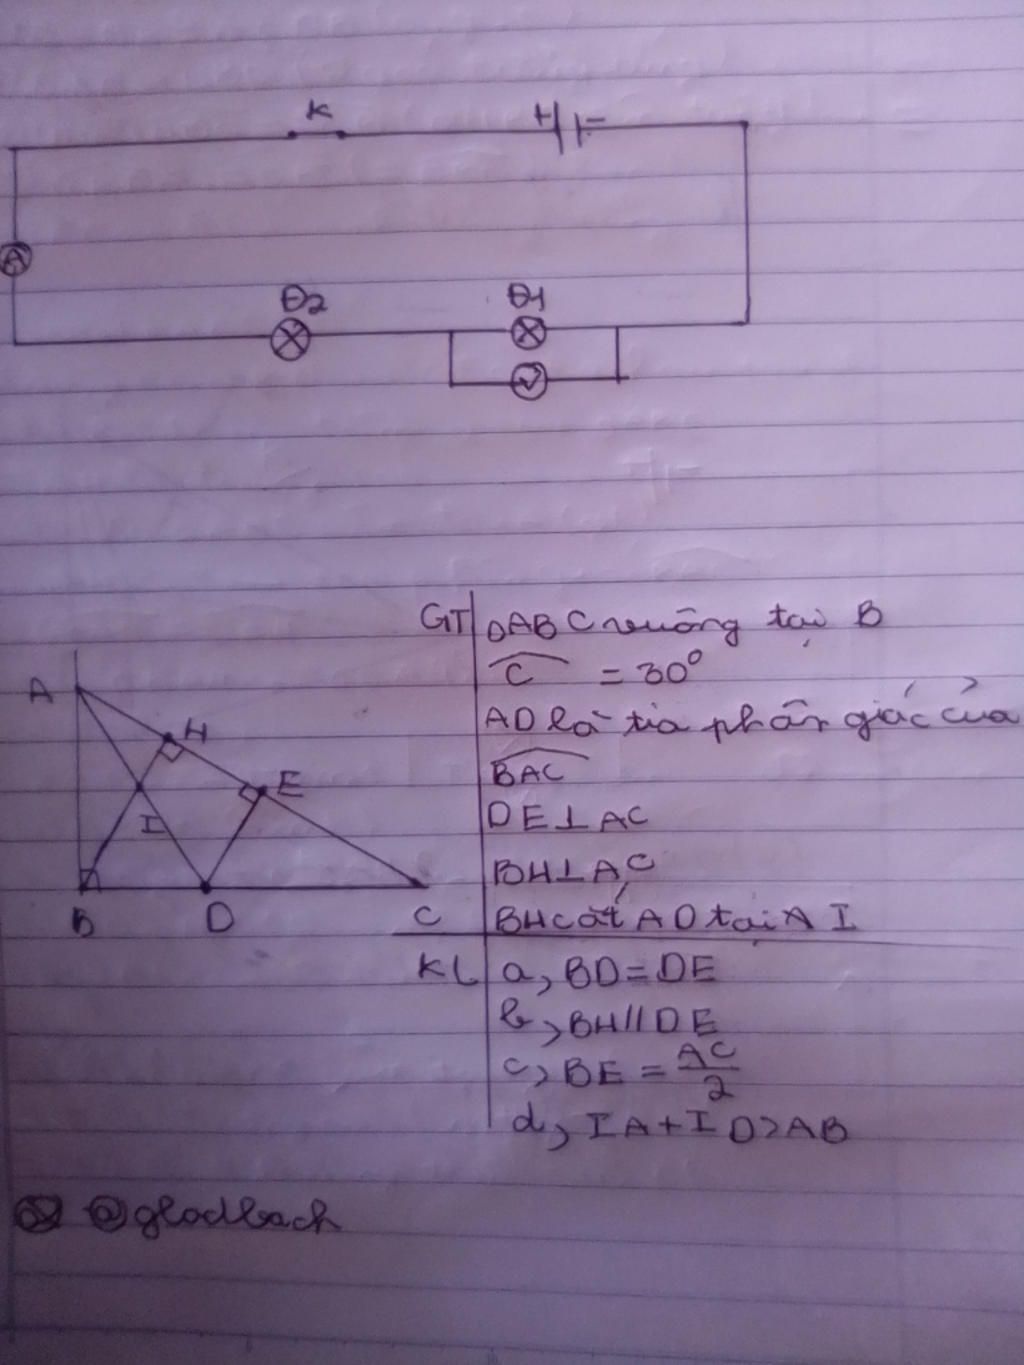 K
+ -
A
Đ2 Đ1
V
GT ΔABC vuông tại B
Ĉ = 30⁰
AD là tia phân giác của
BAC
DE⊥AC
BH⊥AC
BH cắt AD tại I
A H E I B D C
KL a, BD=DE
b, BH//DE
c, BE = AC/2
d, IA+ID>AB
@gladbach